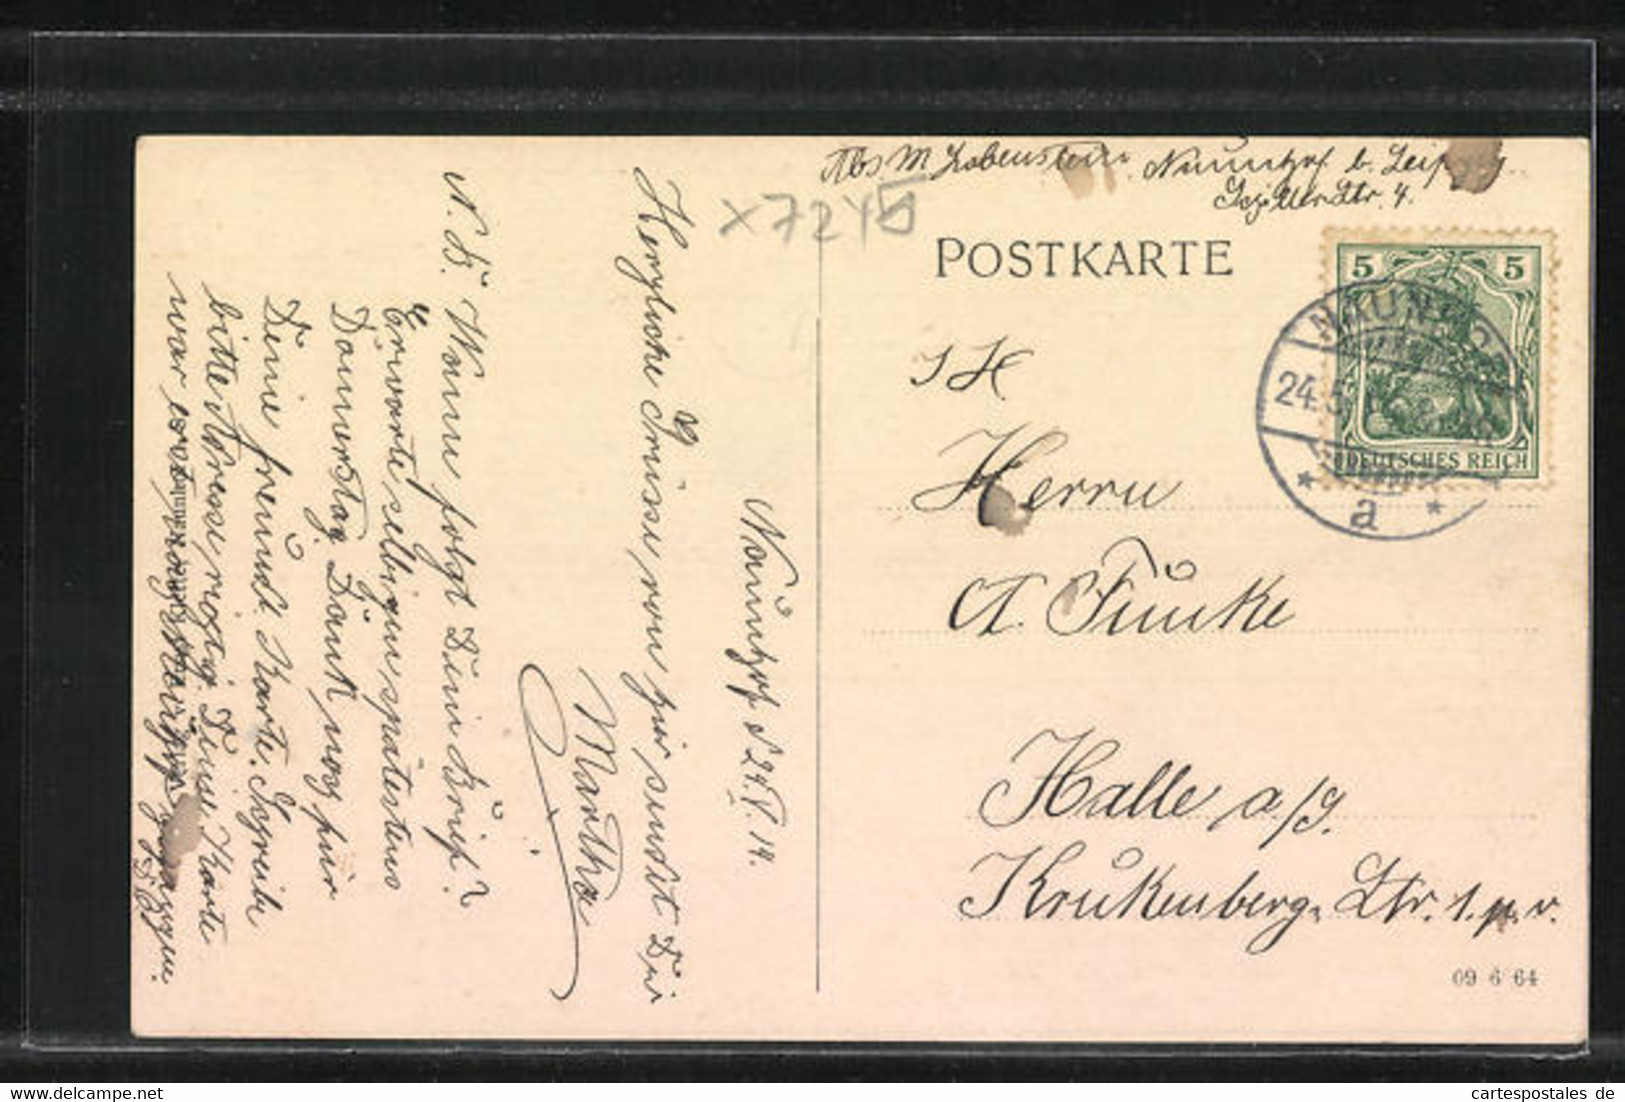 Abs M Lobenstein. Naunhof b. Leipzig
Schillerstr. 4.
x7245
POSTKARTE
5 5
NAUNHOF
24.5
DEUTSCHES REICH
* a *
S H
Herrn
A. Funke
Halle a/S.
Krukenberg Str. 1. p. r.
09 6 64
Naunhof d 24.V.14.
Herzliche Grüsse von hier sendet Dir
Martha
N. B. Wann folgt Dein Brief?
Erwarte selbigen spätestens
Donnerstag. Dank noch für
Deine freundl. Karte. Schreibe
bitte Adresse richtig. Diese Karte
war erst